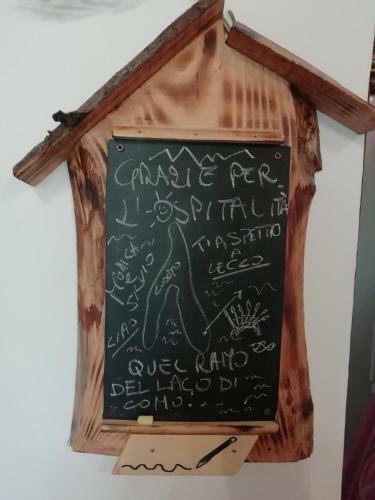 GRAZIE PER
L'OSPITALITÀ
TI ASPETTO
A
LECCO
MONICA
SILVIO
CIAO
QUEL RAMO
DEL LAGO DI
COMO..